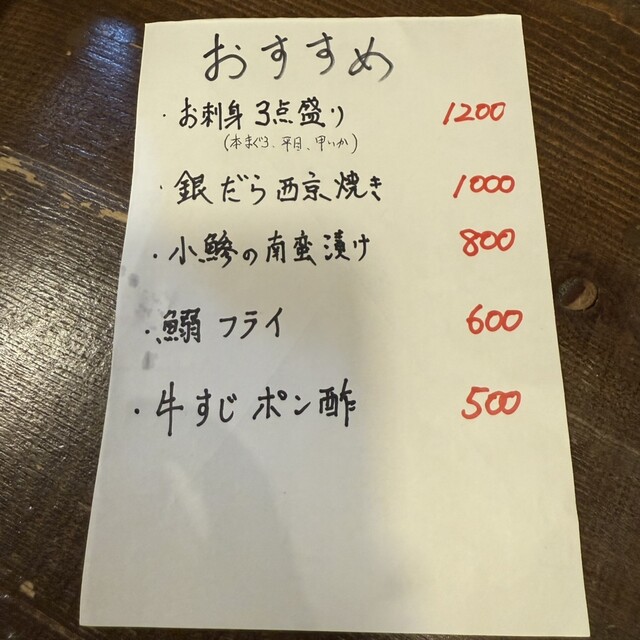 おすすめ
・お刺身3点盛り 1200
(本まぐろ、平目、甲いか)
・銀だら西京焼き 1000
・小鯵の南蛮漬け 800
・鰯フライ 600
・牛すじポン酢 500